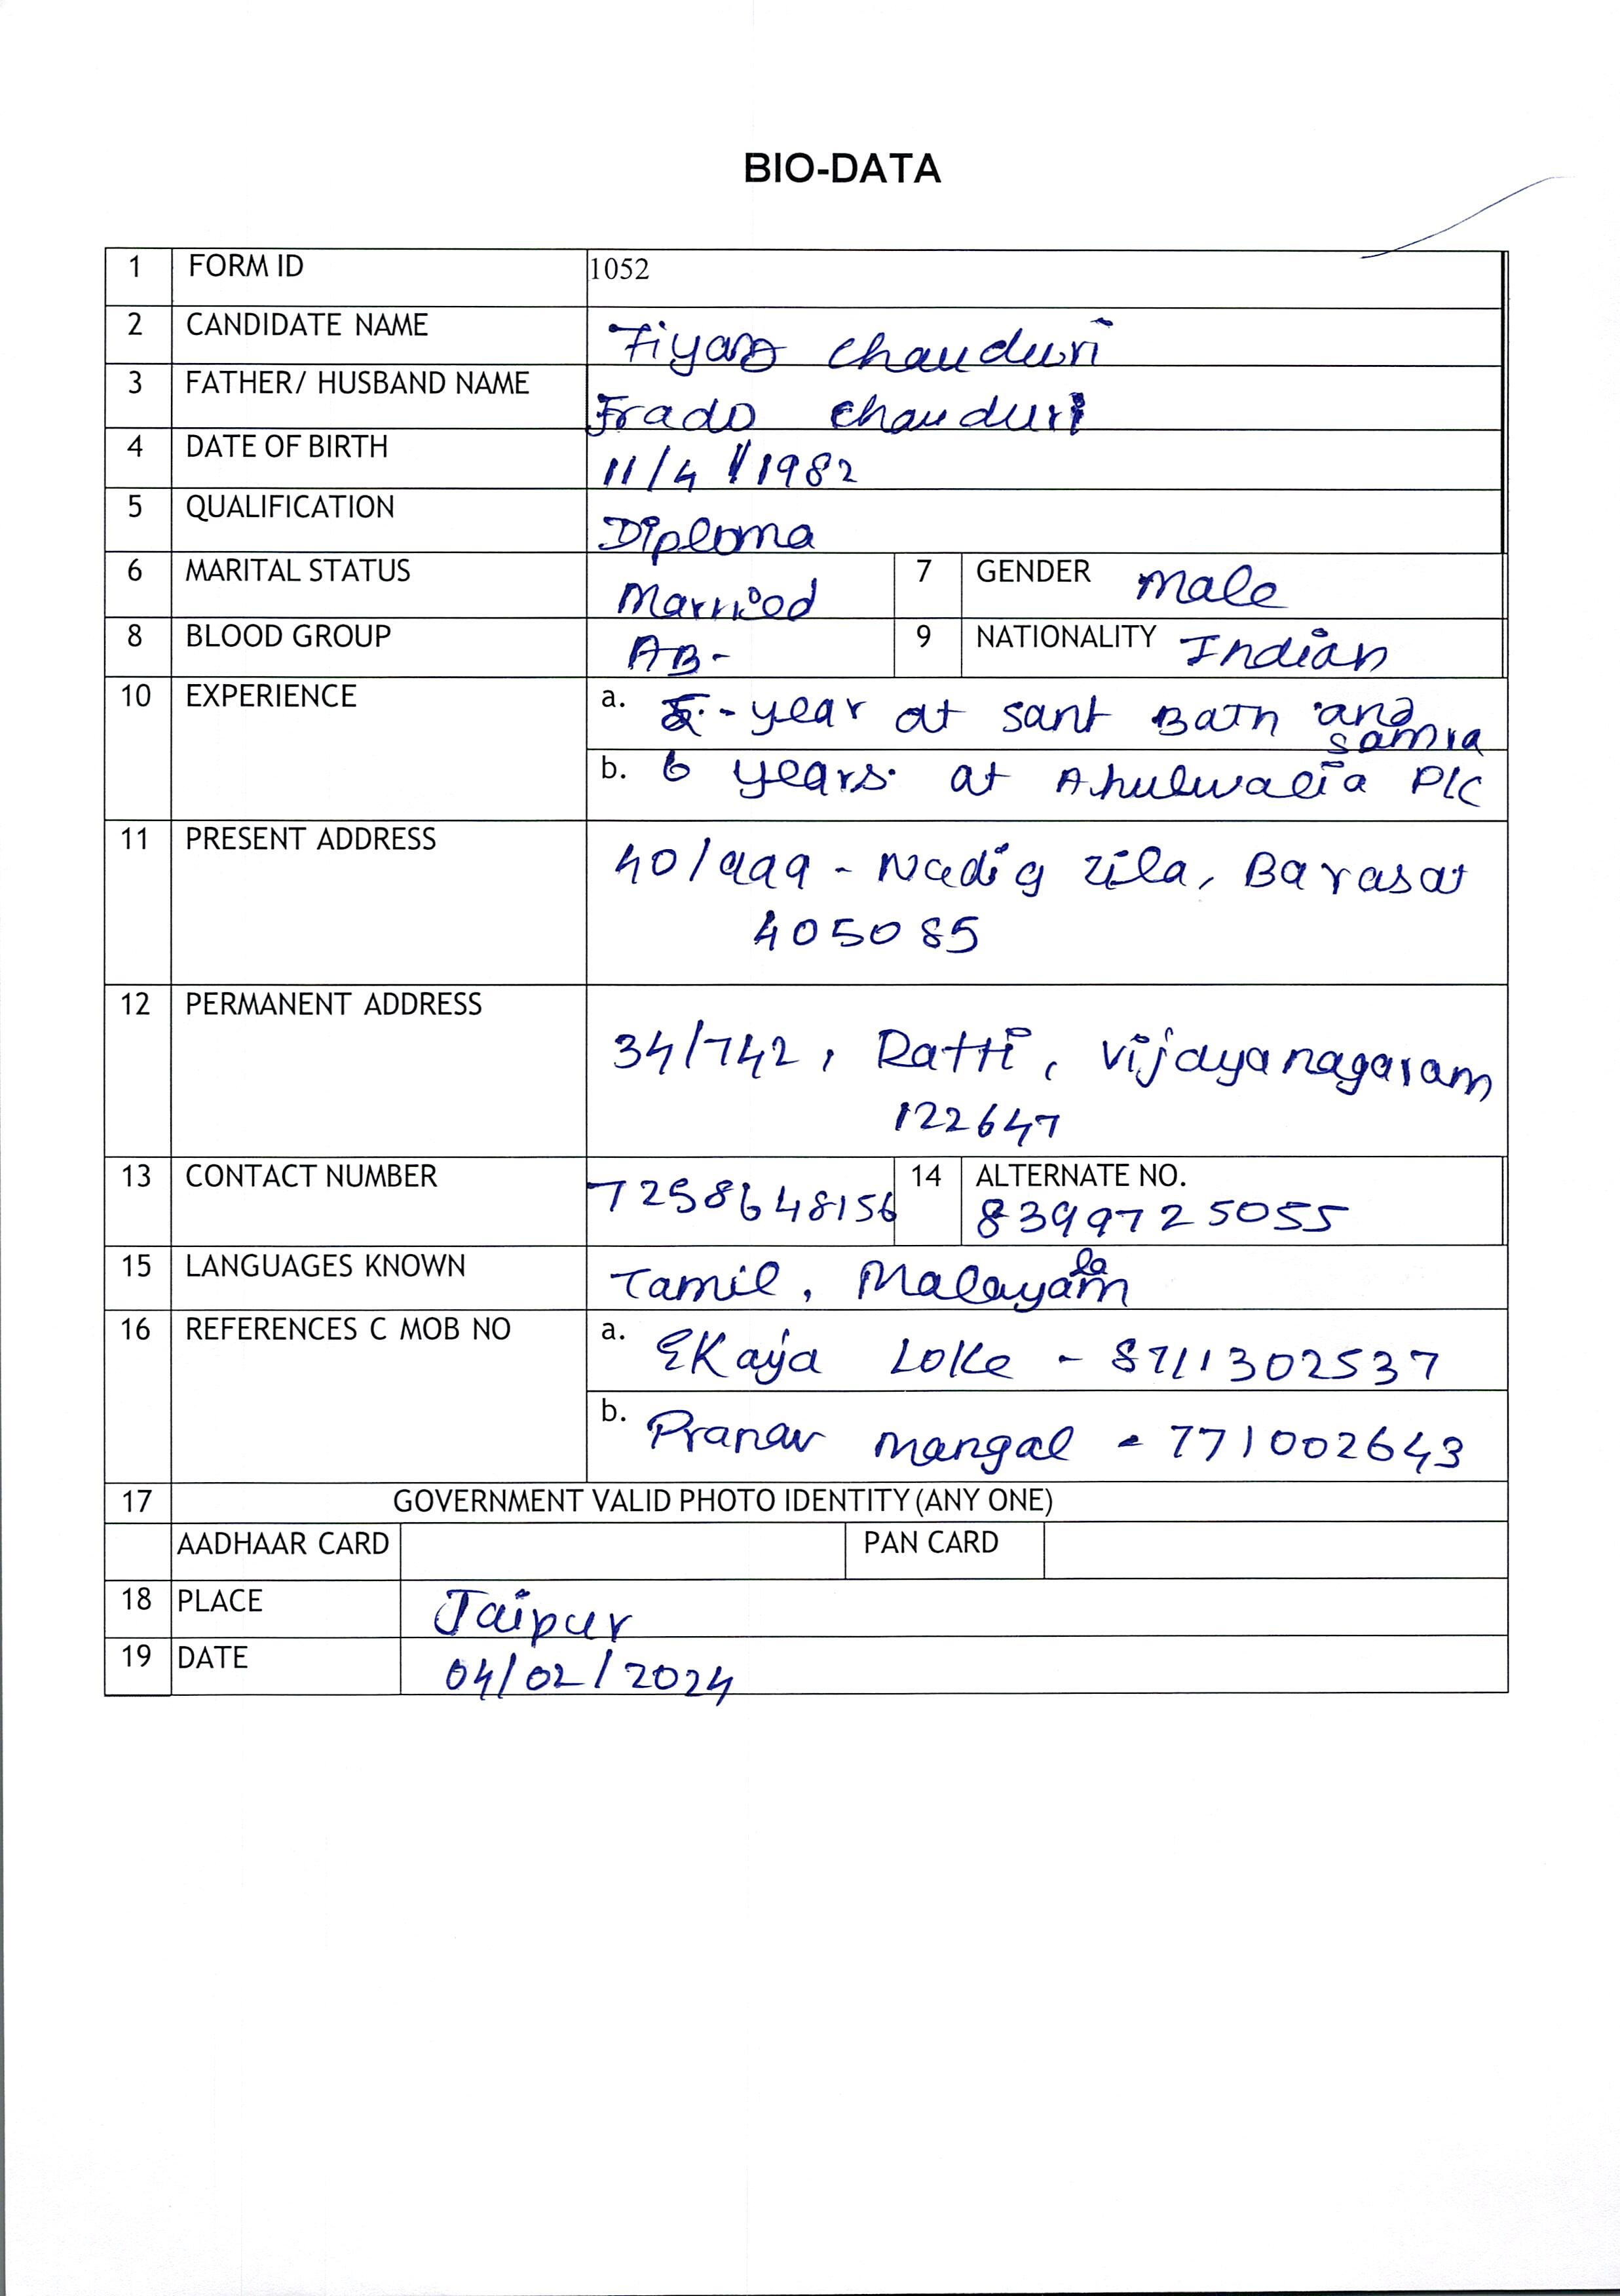 BIO-DATA
1 FORM ID 1052
2 CANDIDATE NAME Fiyaz chauduri
3 FATHER/ HUSBAND NAME Frado chauduri
4 DATE OF BIRTH 11/4/1982
5 QUALIFICATION Diploma
6 MARITAL STATUS Married 7 GENDER male
8 BLOOD GROUP AB- 9 NATIONALITY Indian
10 EXPERIENCE a. -year at sant Bath and
samra
b. 6 years at Ahulwalia PLC
11 PRESENT ADDRESS 40/999 - Nadig zila, Barasat
405085
12 PERMANENT ADDRESS 34/742, Ratti, Vijayanagaram
122647
13 CONTACT NUMBER 7258648156 14 ALTERNATE NO.
8399725055
15 LANGUAGES KNOWN Tamil, Malayalam
16 REFERENCES C MOB NO a. Ekaja Loke - 8711302537
b. Pranav mangal - 771002643
17 GOVERNMENT VALID PHOTO IDENTITY (ANY ONE)
AADHAAR CARD PAN CARD
18 PLACE Jaipur
19 DATE 04/02/2024